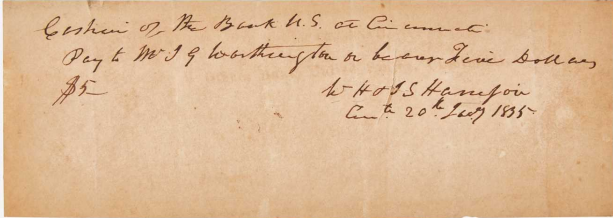 Cashier of the Bank U.S. at Cincinnati
Pay to Mr J G Worthington or bearer Five Dollars
$5- W H & J S Harrison
Cinti. 20th Jany 1835